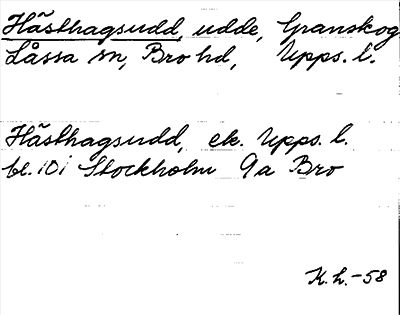 Hästhagsudd, udde, Granskog
Låssa sn, Bro hd, Upps. l.
Hästhagsudd, ek. Upps. l.
bl. 10i Stockholm 9a Bro
K.h.-58